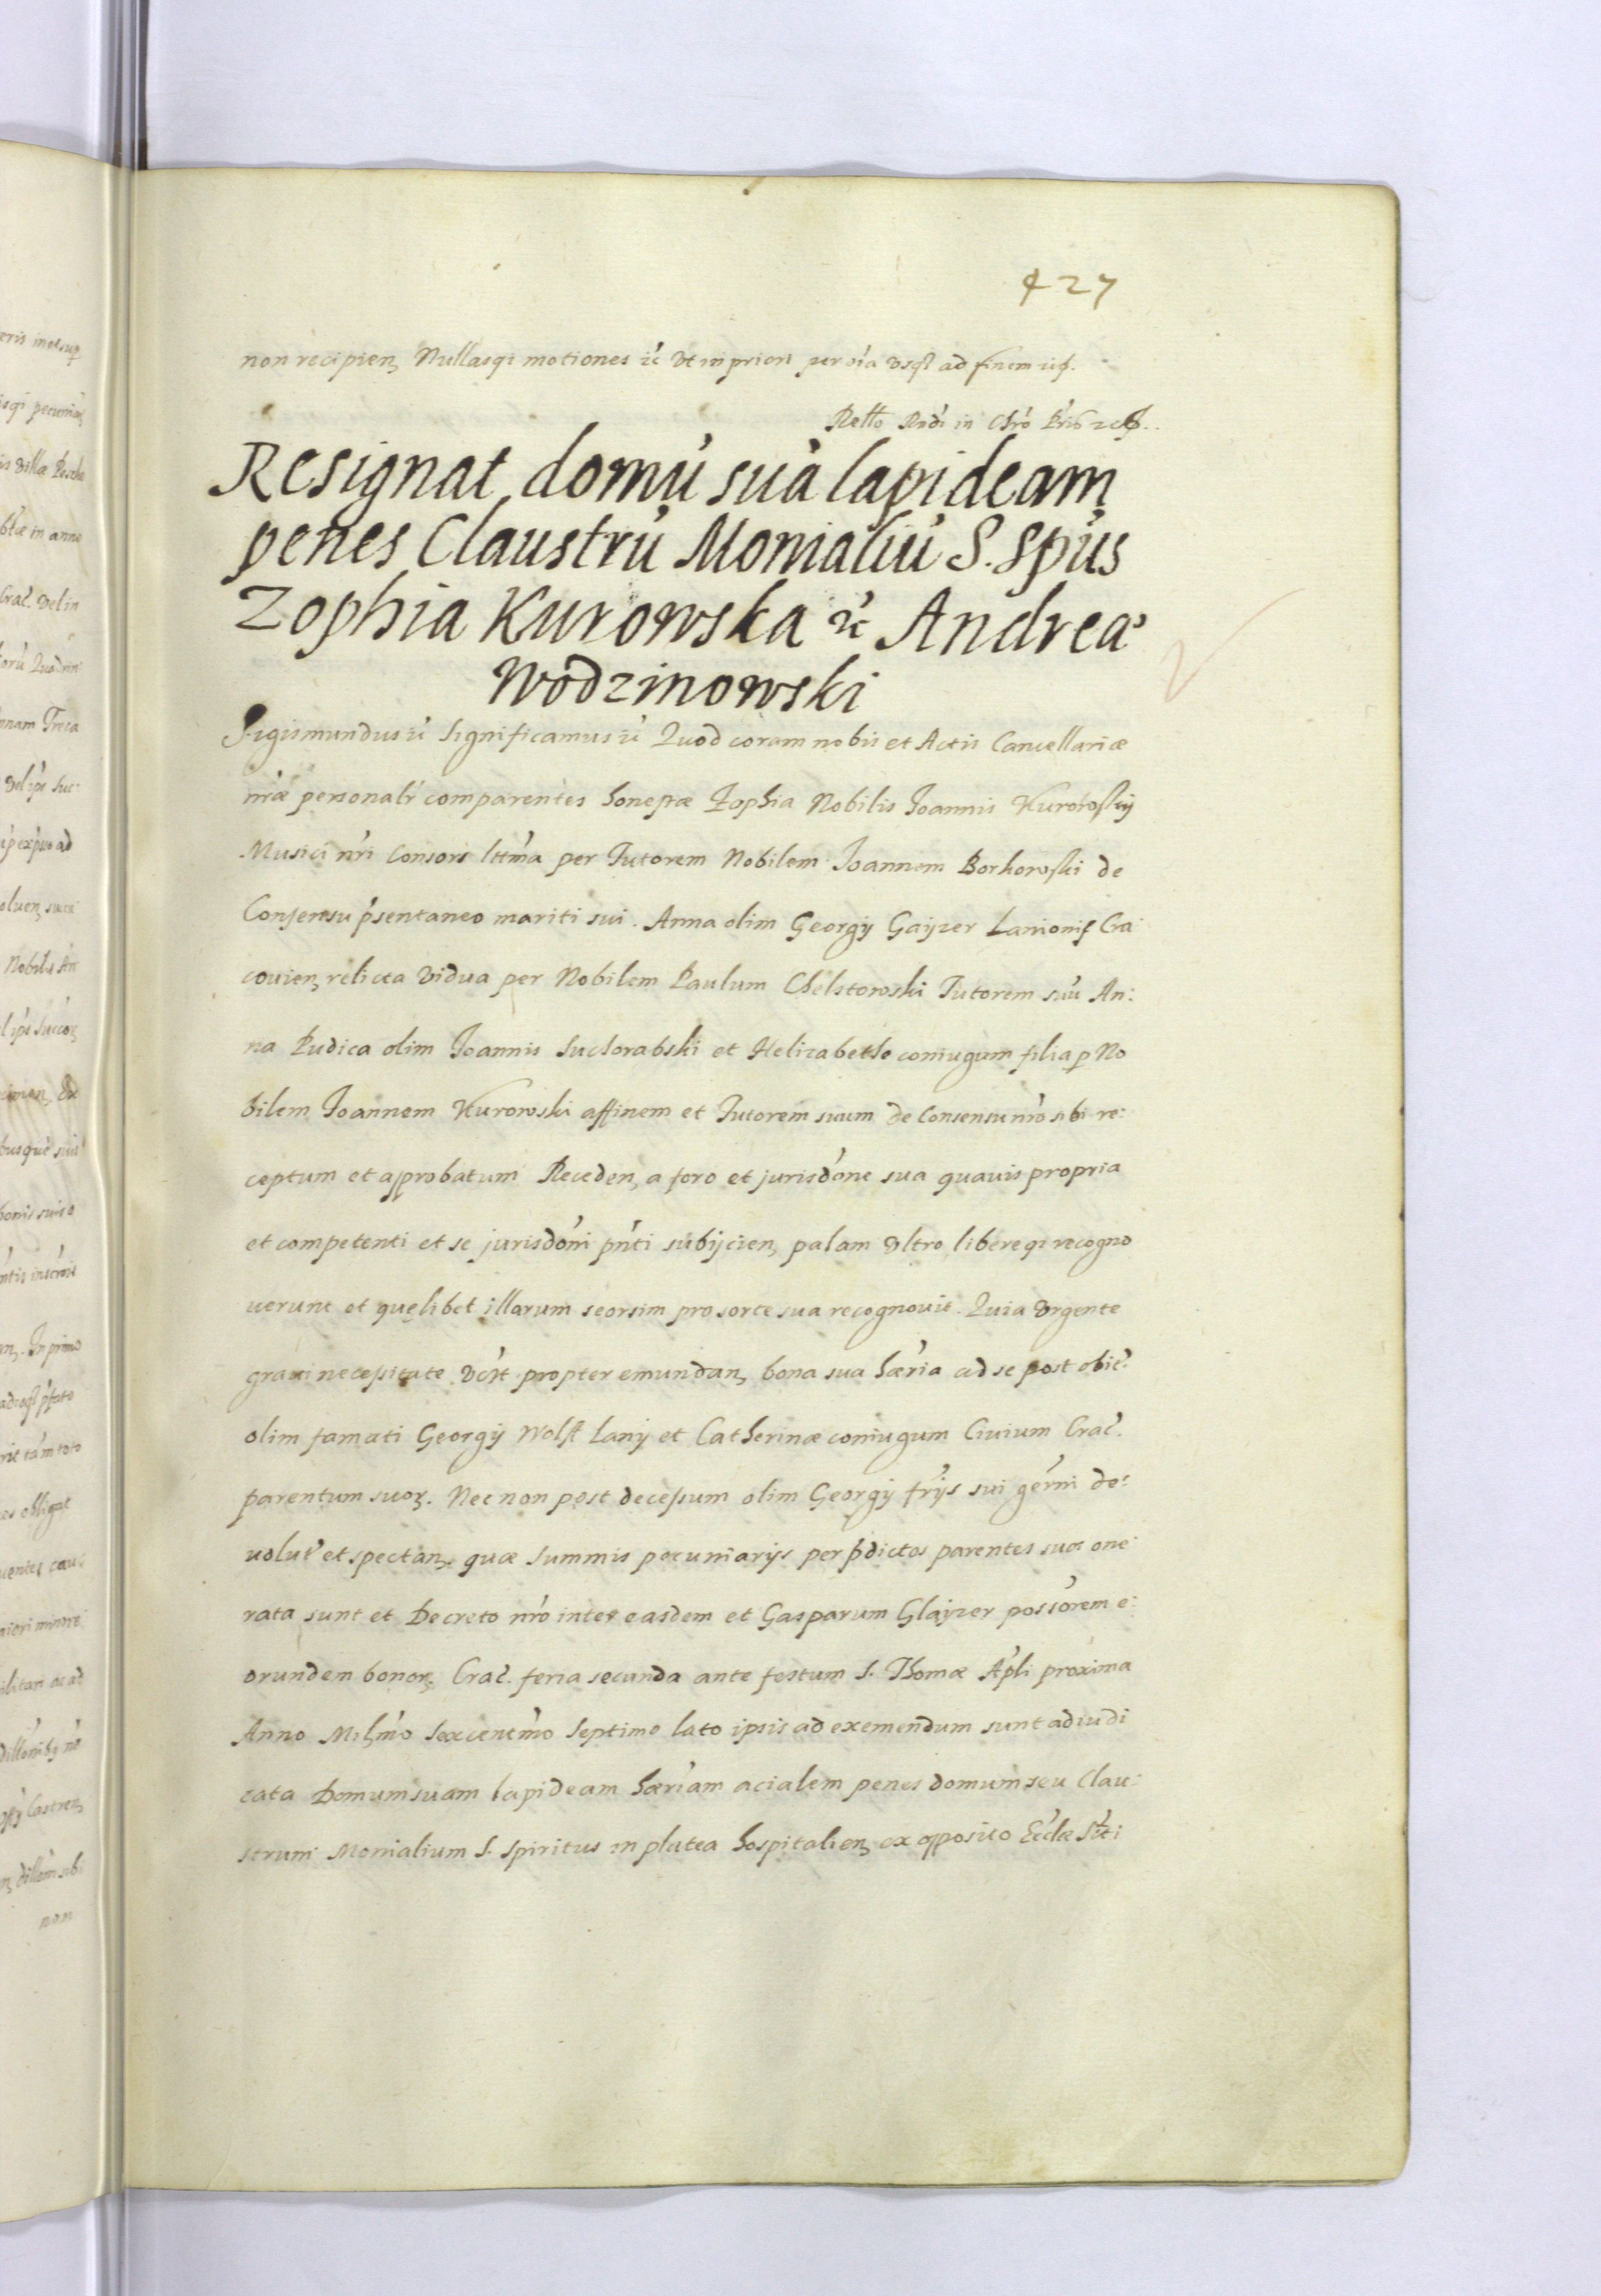 427
non recipien, Nullasqʒ motiones ꝛc̃ vt in priori per oı̃a vsqʒ ad finem
Rello Rñdi in Chrõ
Resignat domũ suã lapideam
penes Claustrũ Monialiũ S. Spũs
Zophia Kurowska ꝛc̃ Andreæ
Wodzinowski
Sigismundus ꝛc̃ Significamus ꝛc̃ Quod coram nobis et Actis Cancellariæ
nr̃æ personalr̃ comparentes honestæ Zophia Nobilis Joannis Kurowskij
Musici nr̃i Consors lttm̃a per Tutorem Nobilem Joannem Borkowski de
Consensu p̃sentaneo mariti sui. Anna olim Georgij Gayzer Lanionis Cra
couien, relicta vidua per Nobilem Paulum Chelstowski Tutorem suũ An:
na Pudica olim Joannis Suchorabski et Helizabethe coniugum filia p No
bilem Joannem Kurowski affinem et Tutorem suum de Consensu nr̃o sibi re:
ceptum et approbatum Receden, a foro et jurisdõne sua quauis propria
et competenti et se jurisdõni pñti subijcien, palam vltro libereqʒ recogno
uerunt et quęlibet illarum seorsim pro sorte sua recognouit. Quia vrgente
graui necessitate vdz̃t propter emundan, bona sua hæria ad se post obit̃
olim famati Georgij Wolff Lanij et Catherinæ coniugum Ciuium Crac̃.
parentum suoꝝ. Nec non post decessum olim Georgij fr̃ijs sui germ̃i de:
uolut̃ et spectan, quæ summis pecuniarijs per p̃dictos parentes suos one
rata sunt et Decreto nr̃o inter easdem et Gasparum Glayzer possõrem e:
orundem bonoꝝ. Crac̃. feria secunda ante festum S. Thomæ Ap̃li proxima
Anno Milm̃o Sexcentm̃o Septimo lato ipsis ad exemendum sunt adiudi
cata Domum suam lapideam hær̃iam acialem penes domum seu Clau:
strum Monialium S. Spiritus in platea hospitalien, ex opposito Eccl̃æ Sti